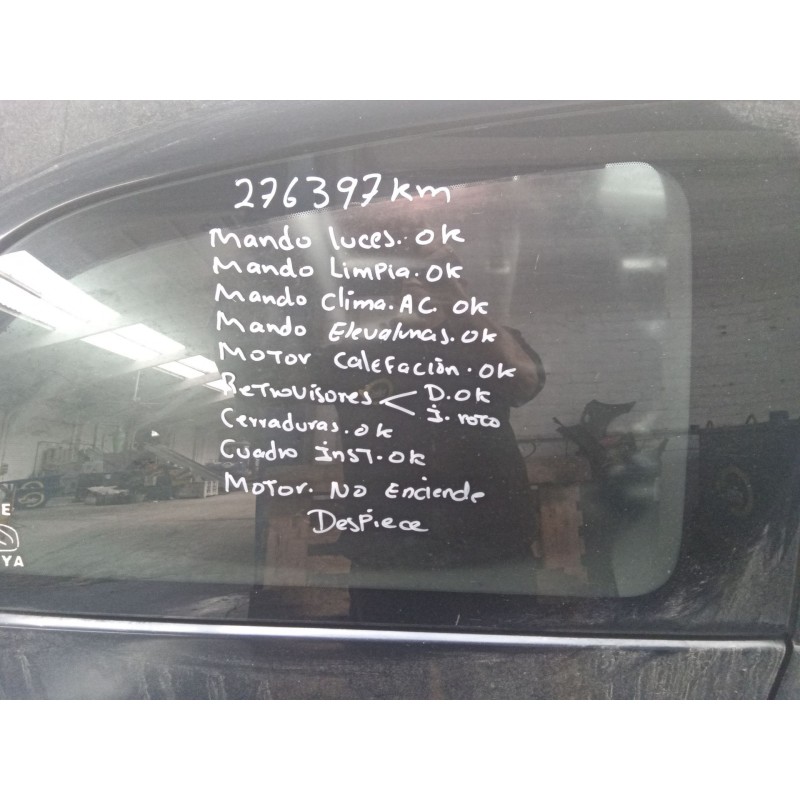 276397 km
Mando luces. OK
Mando Limpia. OK
Mando Clima. AC. OK
Mando Elevalunas. OK
Motor Calefación. OK
Retrovisores < D. OK
I. roto
Cerraduras. OK
Cuadro inst. OK
Motor. No Enciende
Despiece
E
YA